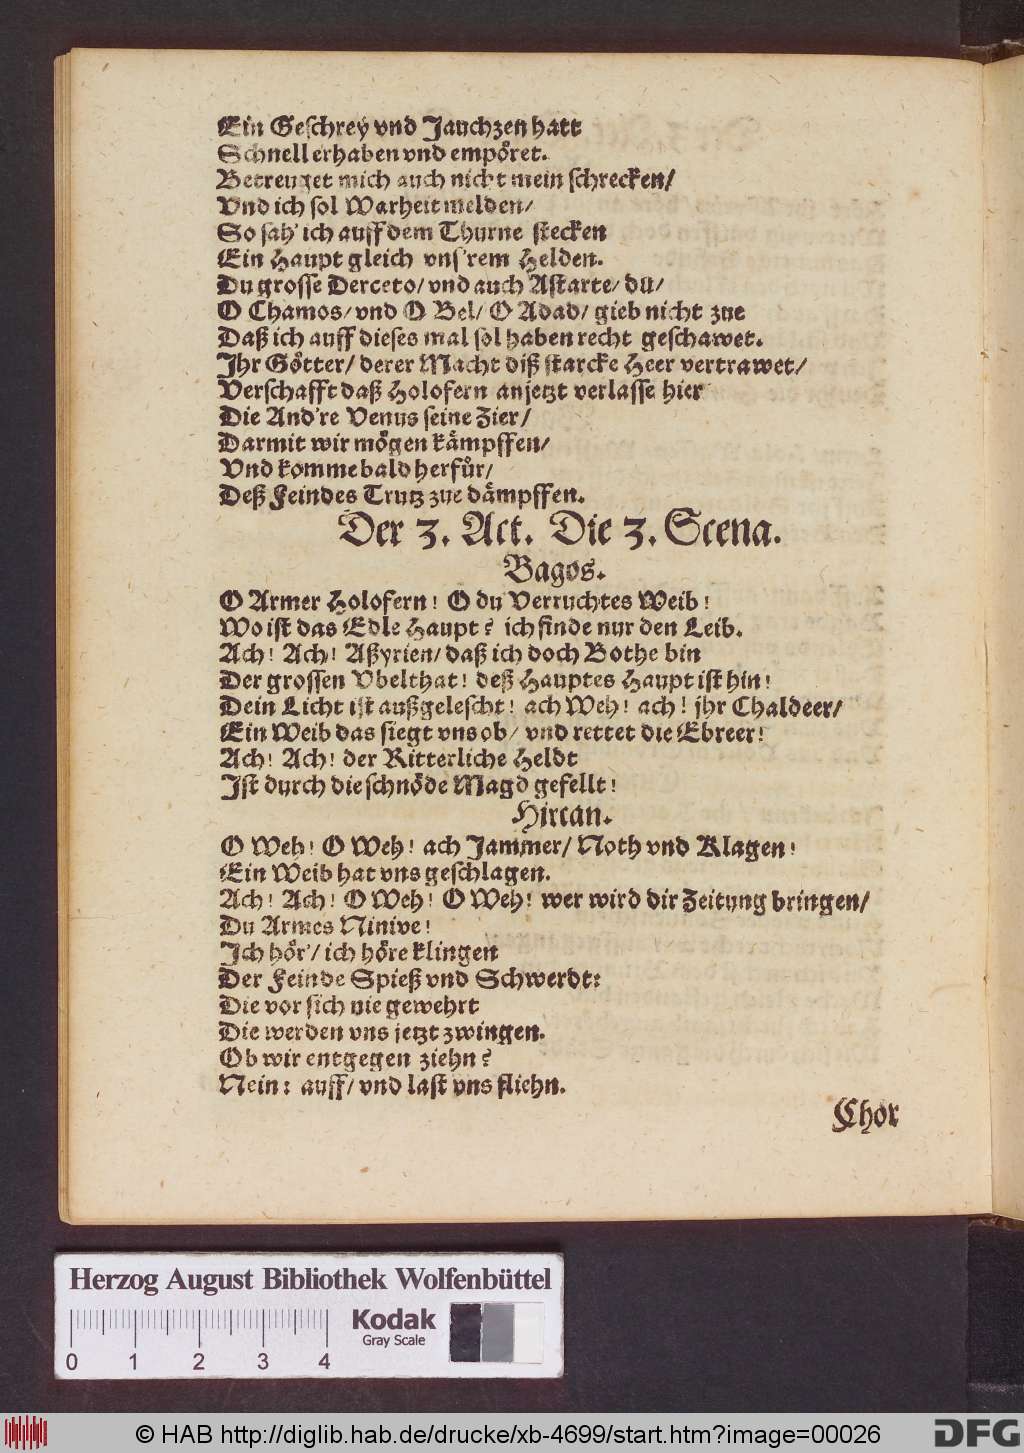 Ein Geschrey vnd Jauchzen hatt
Schnell erhaben vnd empöret.
Betreuget mich auch nicht mein schrecken/
Vnd ich sol Warheit melden/
So sah' ich auff dem Thurne stecken
Ein Haupt gleich vns'rem Helden.
Du grosse Derceto/ vnd auch Astarte/ du/
O Chamos/ vnd O Bel/ O Adad/ gieb nicht zue
Daß ich auff dieses mal sol haben recht geschawet.
Jhr Götter/ derer Macht diß starcke Heer vertrawet/
Verschafft daß Holofern anjetzt verlasse hier
Die And're Venus seine Zier/
Darmit wir mögen kämpffen/
Vnd komme bald herfür/
Deß Feindes Trutz zue dämpffen.
Der 3. Act. Die 3. Scena.
Bagos.
O Armer Holofern! O du Verruchtes Weib!
Wo ist das Edle Haupt? ich finde nur den Leib.
Ach! Ach! Aßyrien/ daß ich doch Bothe bin
Der grossen Vbelthat! deß Hauptes Haupt ist hin!
Dein Licht ist außgelescht! ach Weh! ach! jhr Chaldeer/
Ein Weib das siegt vns ob/ vnd rettet die Ebreer!
Ach! Ach! der Ritterliche Heldt
Jst durch die schnöde Magd gefellt!
Hircan.
O Weh! O Weh! ach Jammer/ Noth vnd Klagen!
Ein Weib hat vns geschlagen.
Ach! Ach! O Weh! O Weh! wer wird dir Zeitung bringen/
Du Armes Ninive!
Jch hör'/ ich höre klingen
Der Feinde Spieß vnd Schwerdt:
Die vor sich nie gewehrt
Die werden vns jetzt zwingen.
Ob wir entgegen ziehn?
Nein: auff/ vnd last vns fliehn.
Chor
Herzog August Bibliothek Wolfenbüttel
Kodak
Gray Scale
0 1 2 3 4
© HAB http://diglib.hab.de/drucke/xb-4699/start.htm?image=00026
DFG